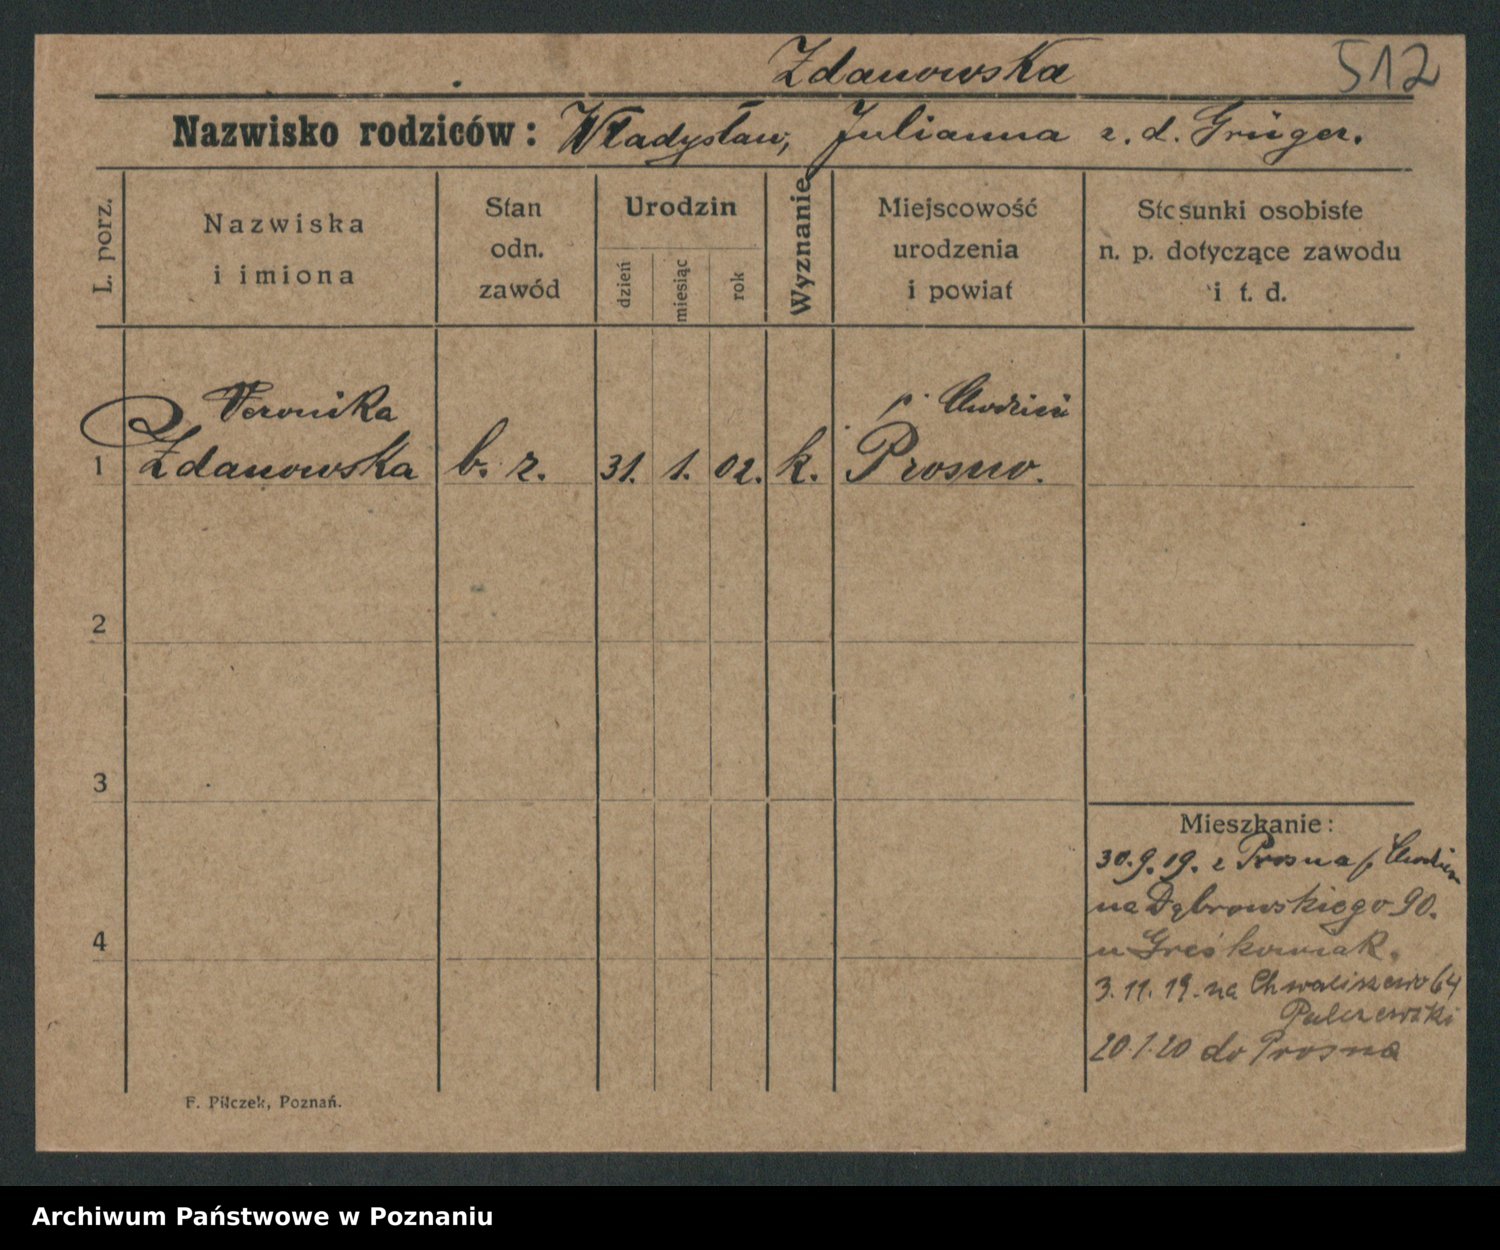 Zdanowska
512
Nazwisko rodziców: Władysław, Julianna z. d. Grüger.
L. porz.
Nazwiska
i imiona
Stan
odn.
zawód
Urodzin
dzień
miesiąc
rok
Wyznanie
Miejscowość
urodzenia
i powiat
Stosunki osobiste
n. p. dotyczące zawodu
i t. d.
Veronika
p. Chodzież
1 Zdanowska b. z. 31. 1. 02. k. Prosno.
2
3
Mieszkanie:
30.9.19. z Prosna p. Chodzież
na Dąbrowskiego 90.
u Greśkowiak.
4
3.11.19. na Chwaliszewo 64
Palczewski
20.1.20 do Prosna
F. Pilczek, Poznań.
Archiwum Państwowe w Poznaniu